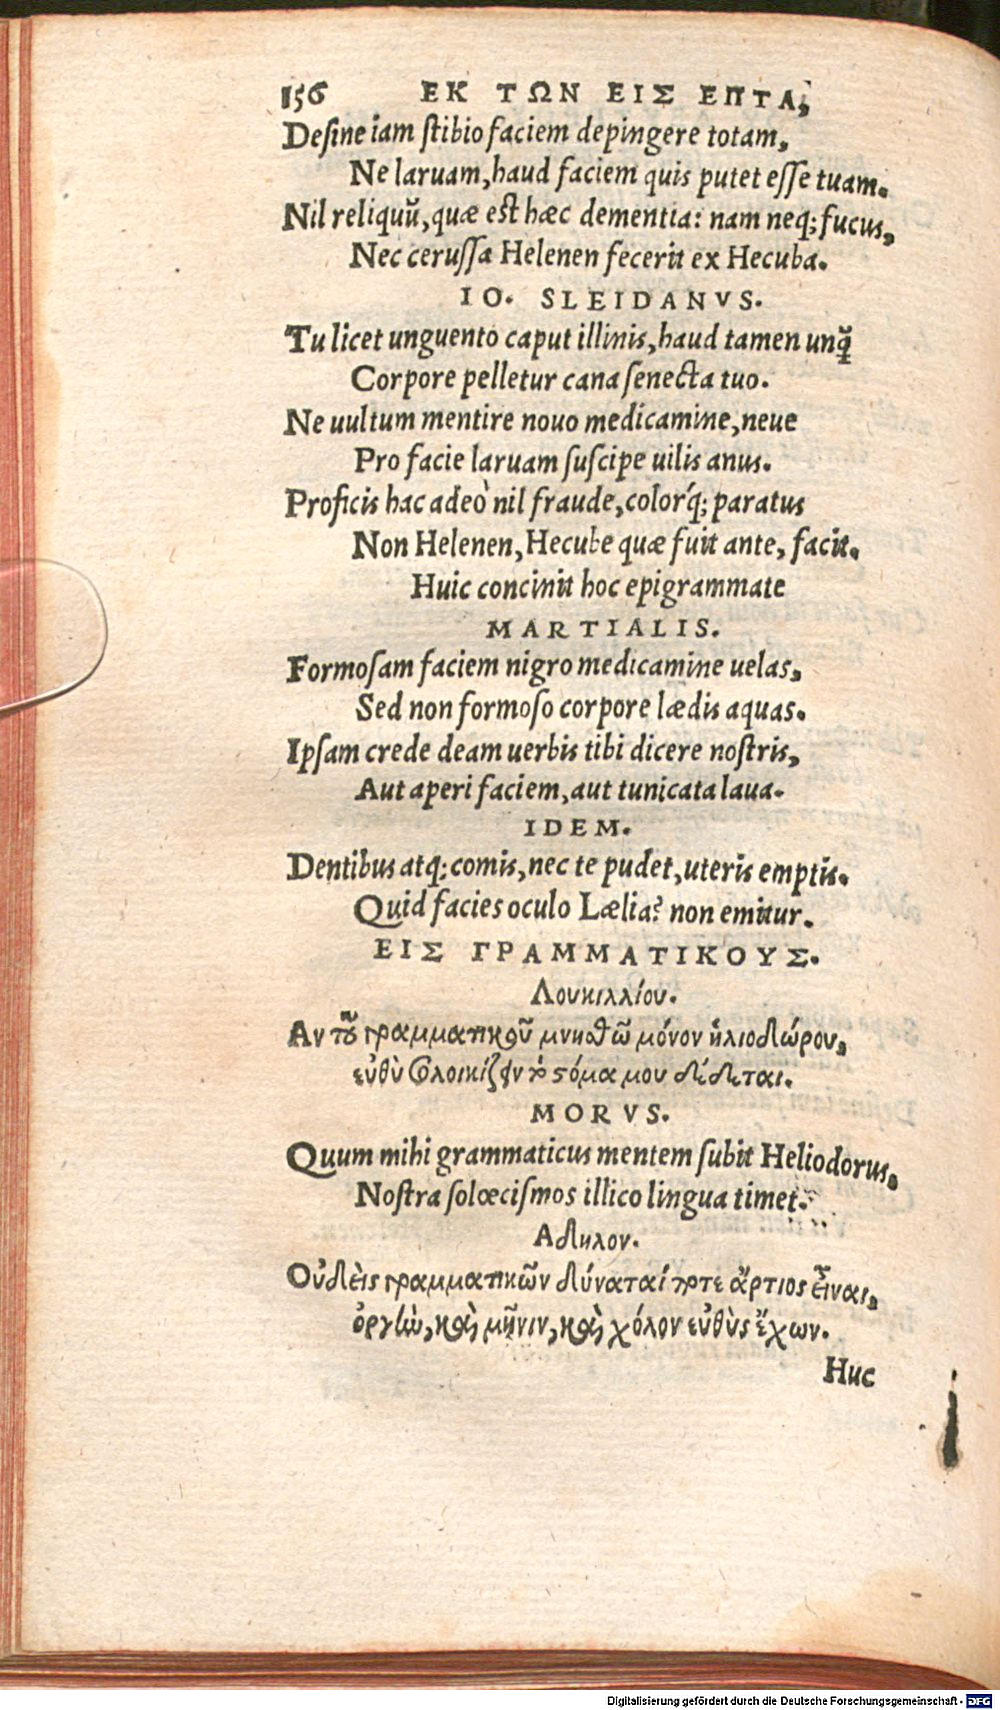 156 ΕΚ ΤΩΝ ΕΙΣ ΕΠΤΑ,
Desine iam stibio faciem depingere totam,
Ne laruam, haud faciem quis putet esse tuam.
Nil reliquũ, quæ est hæc dementia: nam neq; fucus,
Nec cerussa Helenen fecerit ex Hecuba.
IO. SLEIDANVS.
Tu licet unguento caput illinis, haud tamen unq̃
Corpore pelletur cana senecta tuo.
Ne uultum mentire nouo medicamine, neue
Pro facie laruam suscipe uilis anus.
Proficis hac adeò nil fraude, colorq́; paratus
Non Helenen, Hecube quæ fuit ante, facit.
Huic concinit hoc epigrammate
MARTIALIS.
Formosam faciem nigro medicamine uelas,
Sed non formoso corpore lædis aquas.
Ipsam crede deam uerbis tibi dicere nostris,
Aut aperi faciem, aut tunicata laua.
IDEM.
Dentibus atq; comis, nec te pudet, uteris emptis.
Quid facies oculo Lælia? non emitur.
ΕΙΣ ΓΡΑΜΜΑΤΙΚΟΥΣ.
Λουκιλλίου.
Αν τοῦ γραμματικοῦ μνησθῶ μόνον ἡλιοδώρου,
εὐθὺ σολοικίζον τὸ στόμα μου δέδεται.
MORVS.
Quum mihi grammaticus mentem subit Heliodorus,
Nostra solœcismos illico lingua timet.
Αδηλον.
Οὐδεὶς γραμματικῶν δύναταί ποτε ἄρτιος εἶναι,
ὀργὴν, καὶ μῆνιν, καὶ χόλον εὐθὺς ἔχων.
Huc
Digitalisierung gefördert durch die Deutsche Forschungsgemeinschaft - DFG